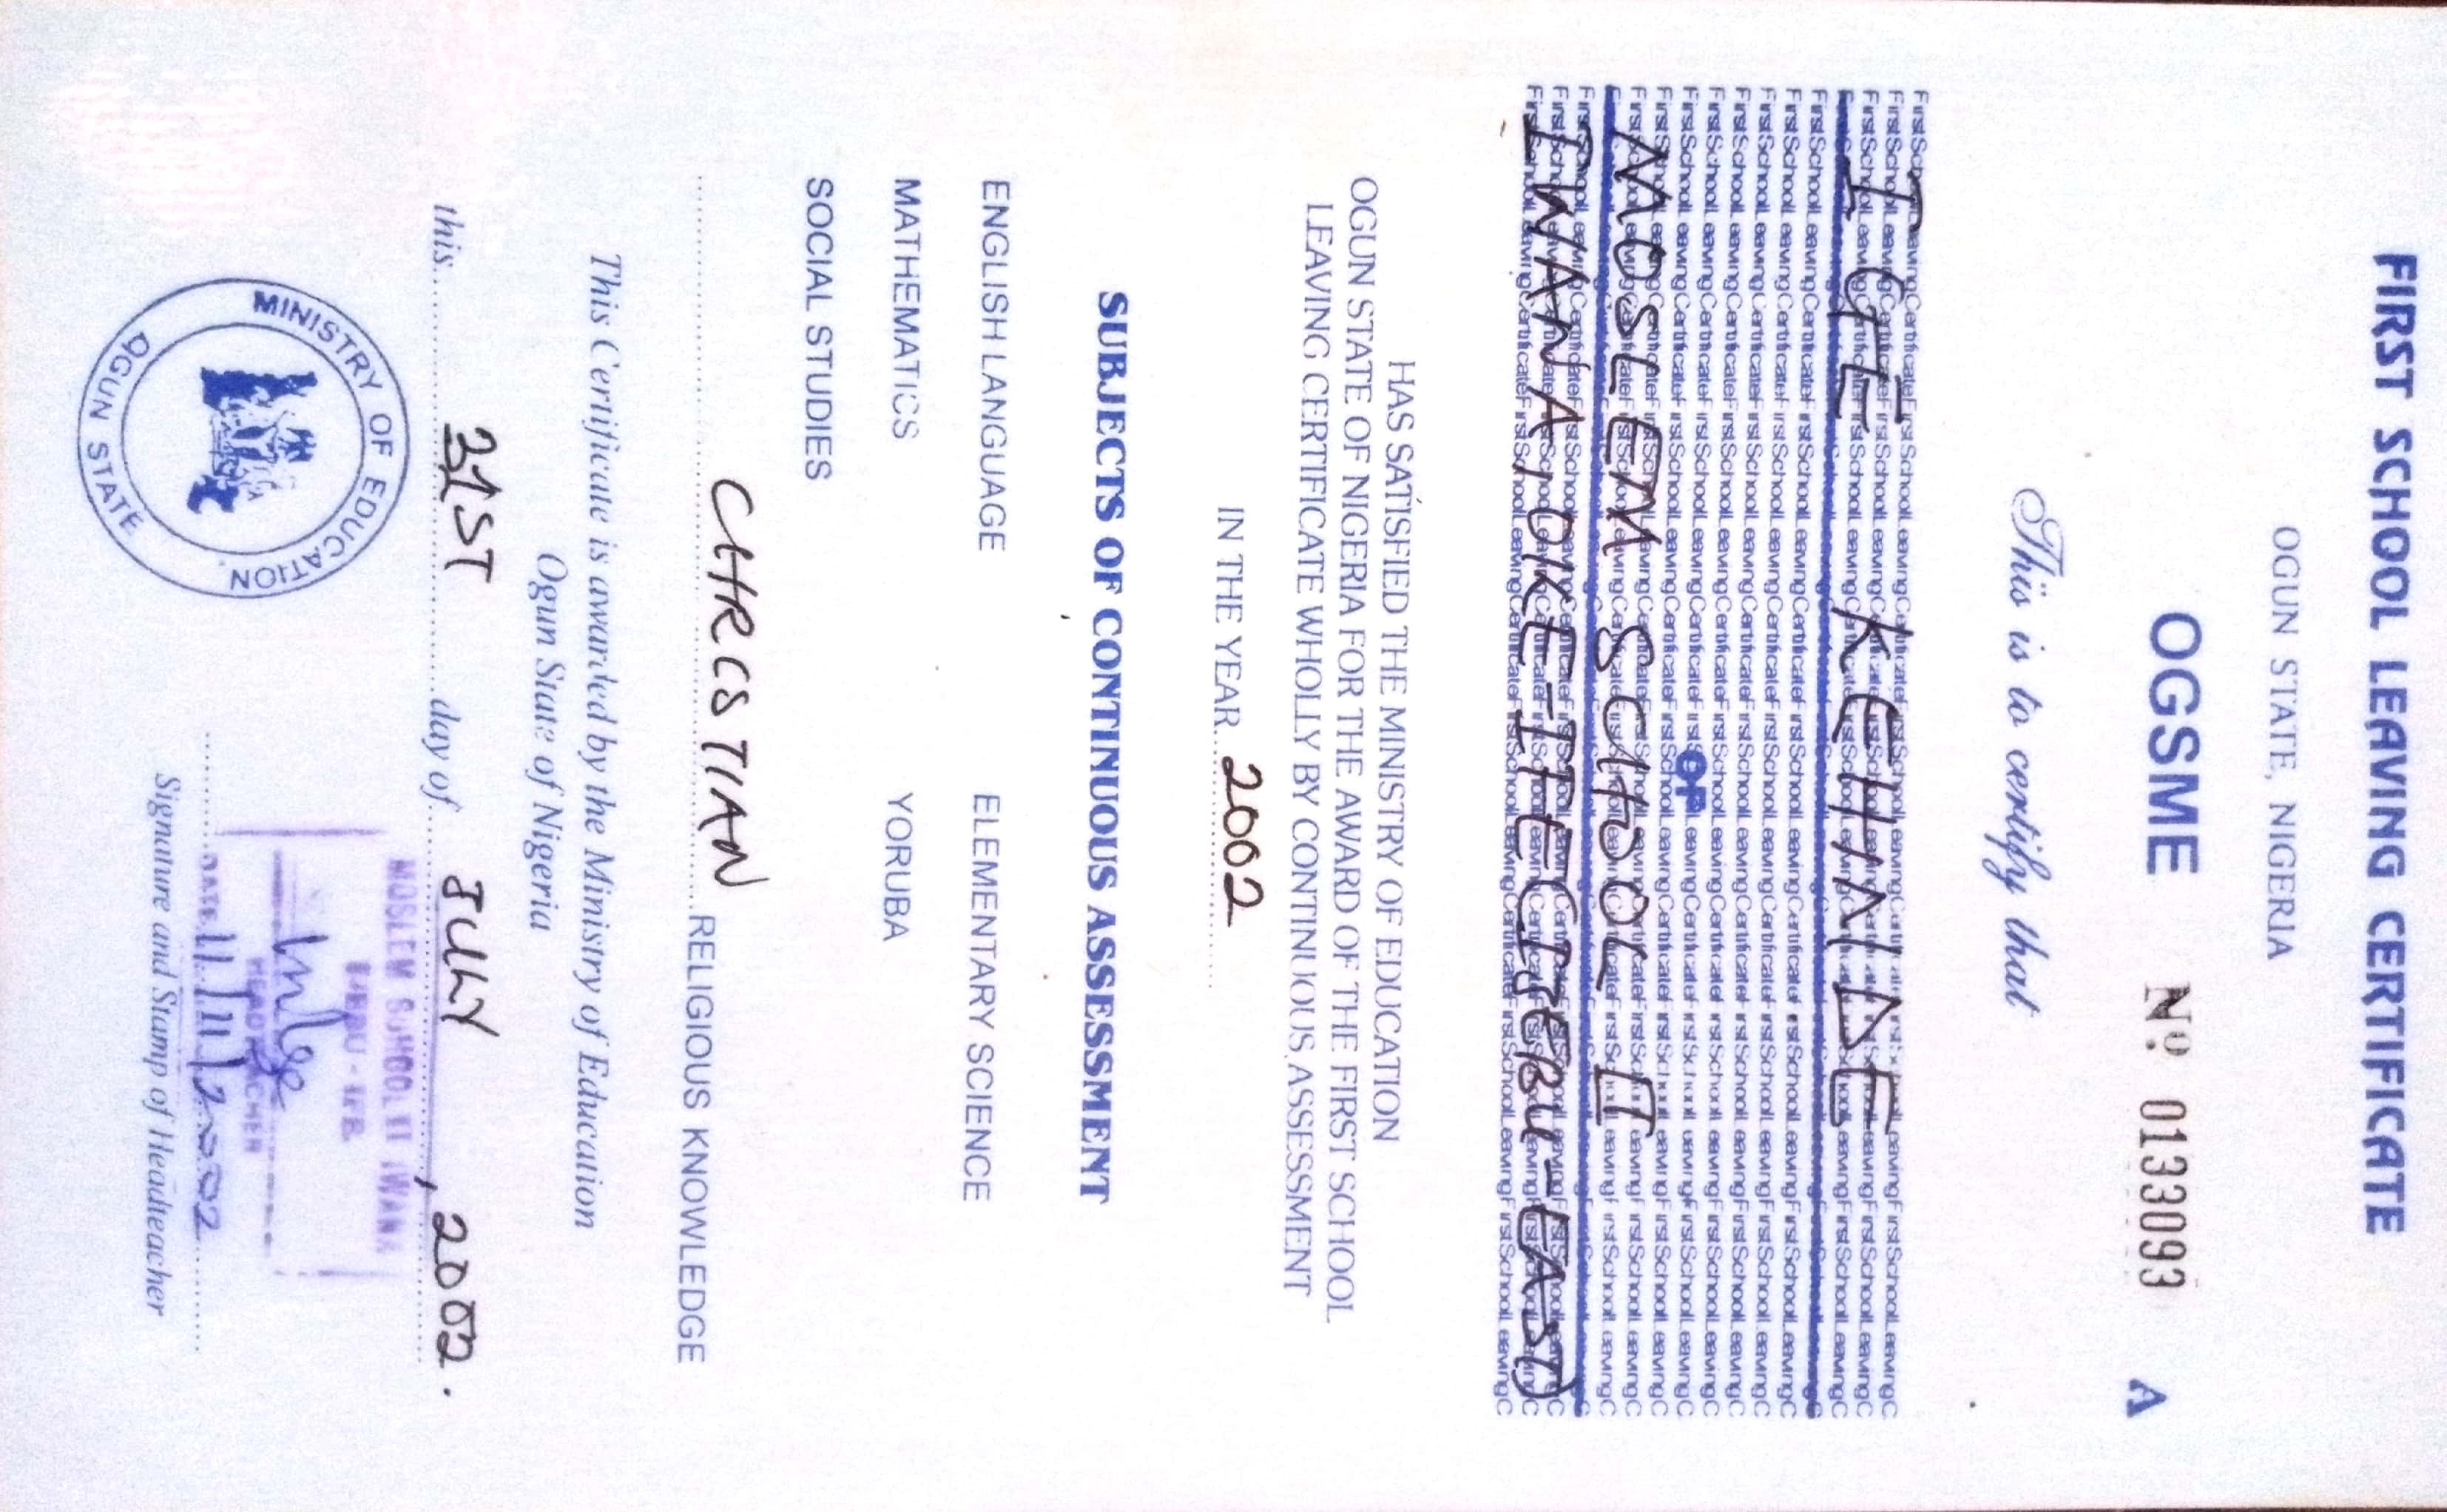 FIRST SCHOOL LEAVING CERTIFICATE
OGUN STATE, NIGERIA
OGSME Nº 0133093 A
This is to certify that
IGE KEHINDE
OF
MOSLEM SCHOOL II
IWANA, OKE-IFE (IJEBU-EAST)
HAS SATISFIED THE MINISTRY OF EDUCATION
OGUN STATE OF NIGERIA FOR THE AWARD OF THE FIRST SCHOOL
LEAVING CERTIFICATE WHOLLY BY CONTINUOUS ASSESSMENT
IN THE YEAR 2002
SUBJECTS OF CONTINUOUS ASSESSMENT
ENGLISH LANGUAGE ELEMENTARY SCIENCE
MATHEMATICS YORUBA
SOCIAL STUDIES
CHRISTIAN RELIGIOUS KNOWLEDGE
This Certificate is awarded by the Ministry of Education
Ogun State of Nigeria
this 31ST day of JULY, 2002.
MINISTRY OF EDUCATION
OGUN STATE
MOSLEM SCHOOL II IWANA
HEADTEACHER
DATE 11/11/2002
Signature and Stamp of Headteacher